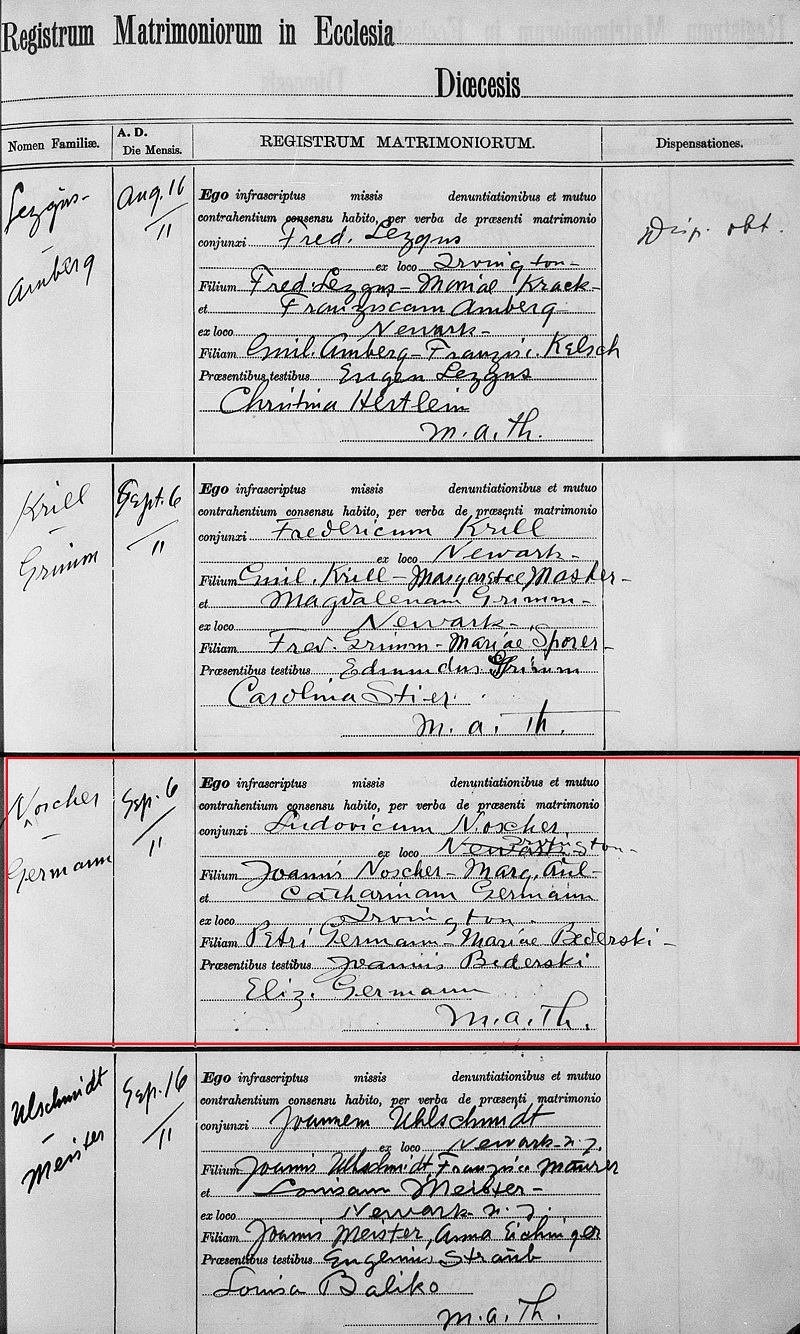 Registrum Matrimoniorum in Ecclesia
Diœcesis
Nomen Familiæ.
A. D.
Die Mensis.
REGISTRUM MATRIMONIORUM.
Dispensationes.
Lezgus-
Amberg
Aug. 16
11
Ego infrascriptus missis denuntiationibus et mutuo
contrahentium consensu habito, per verba de præsenti matrimonio
conjunxi Fred. Lezgus
ex loco Irvington-
Filium Fred. Lezgus- Mariae Krack-
et Franziscam Amberg
ex loco Newark-
Filiam Emil. Amberg- Franzis. Kelsch
Præsentibus testibus Eugen Lezgus
Christina Hertlein
M. a. Th.
Disp. obt.
Krill
-
Grimm
Sept. 6
11
Ego infrascriptus missis denuntiationibus et mutuo
contrahentium consensu habito, per verba de præsenti matrimonio
conjunxi Fredericum Krill
ex loco Newark-
Filium Emil. Krill- Margaretae Master-
et Magdalenam Grimm-
ex loco Newark-
Filiam Fred. Grimm- Mariae Sporer-
Præsentibus testibus Edmundus Grimm
Carolina Stier.
M. a. Th.
Noscher
-
Germann
Sep. 6
11
Ego infrascriptus missis denuntiationibus et mutuo
contrahentium consensu habito, per verba de præsenti matrimonio
conjunxi Ludovicum Noscher
ex loco Irvington-
Filium Joannis Noscher- Marg. Aul-
et Catharinam Germann
ex loco Irvington.
Filiam Petri Germann- Mariae Bederski-
Præsentibus testibus Joannis Bederski
Eliz. Germann
M. a. Th.
Ulschmidt
-
Meister
Sep. 16
11
Ego infrascriptus missis denuntiationibus et mutuo
contrahentium consensu habito, per verba de præsenti matrimonio
conjunxi Joannem Uhlschmidt
ex loco Newark- N. J.
Filium Joannis Uhlschmidt, Franzisca Maurer
et Louisam Meister-
ex loco Newark N. J.
Filiam Joannis Meister, Anna Eichinger
Præsentibus testibus Eugenius Straub
Louisa Baliko
M. a. Th.